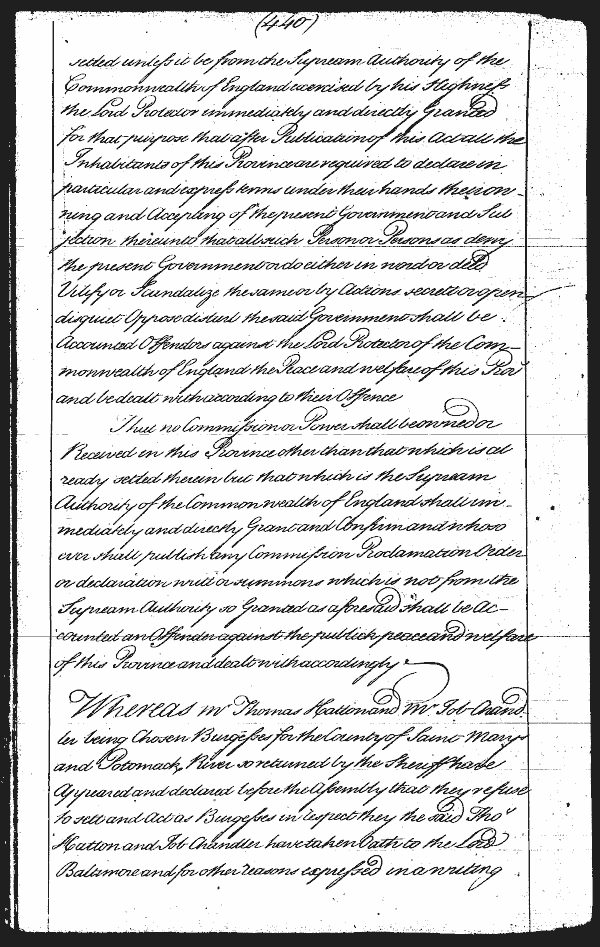 (440)
setled unless it be from the Supream Authority of the
Commonwealth of England exercised by his Highness
the Lord Protector immediately and directly Granted
for that purpose that after Publication of this Act all the
Inhabitants of this Province are required to declare in
particular and express terms under their hands their ow-
ning and Accepting of the present Government and Sub
jection thereunto that all such Person or Persons as deny
the present Government or do either in word or deed
Vilify or Scandalize the same or by Actions secrett or open
disquiet Oppose disturb the said Government shall be
Accounted Offendors against the Lord Protector of the Com-
monwealth of England the Peace and welfare of this Prov
and be dealt with according to their Offence
That no Commission or Power shall be owned or
Received in this Province other than that which is al
ready setled therein but that which is the Supream
Authority of the Common wealth of England shall im-
mediately and directly Grant and Confirm and whoso
ever shall publish any Commission Proclamation Order
or declaration writt or summons which is not from the
Supream Authority so Granted as aforesaid shall be Ac-
counted an Offender against the publick peace and welfare
of this Province and dealt with accordingly
Whereas mr Thomas Hatton and Mr Job Chand
ler being Chosen Burgesses for the County of Saint Marys
and Potomack River so returned by the Sheriff have
Appeared and declared before the Assembly that they refuse
to sett and Act as Burgesses in respect they the said Thos
Hatton and Job Chandler have taken Oath to the Lord
Baltimore and for other reasons expressed in a writing